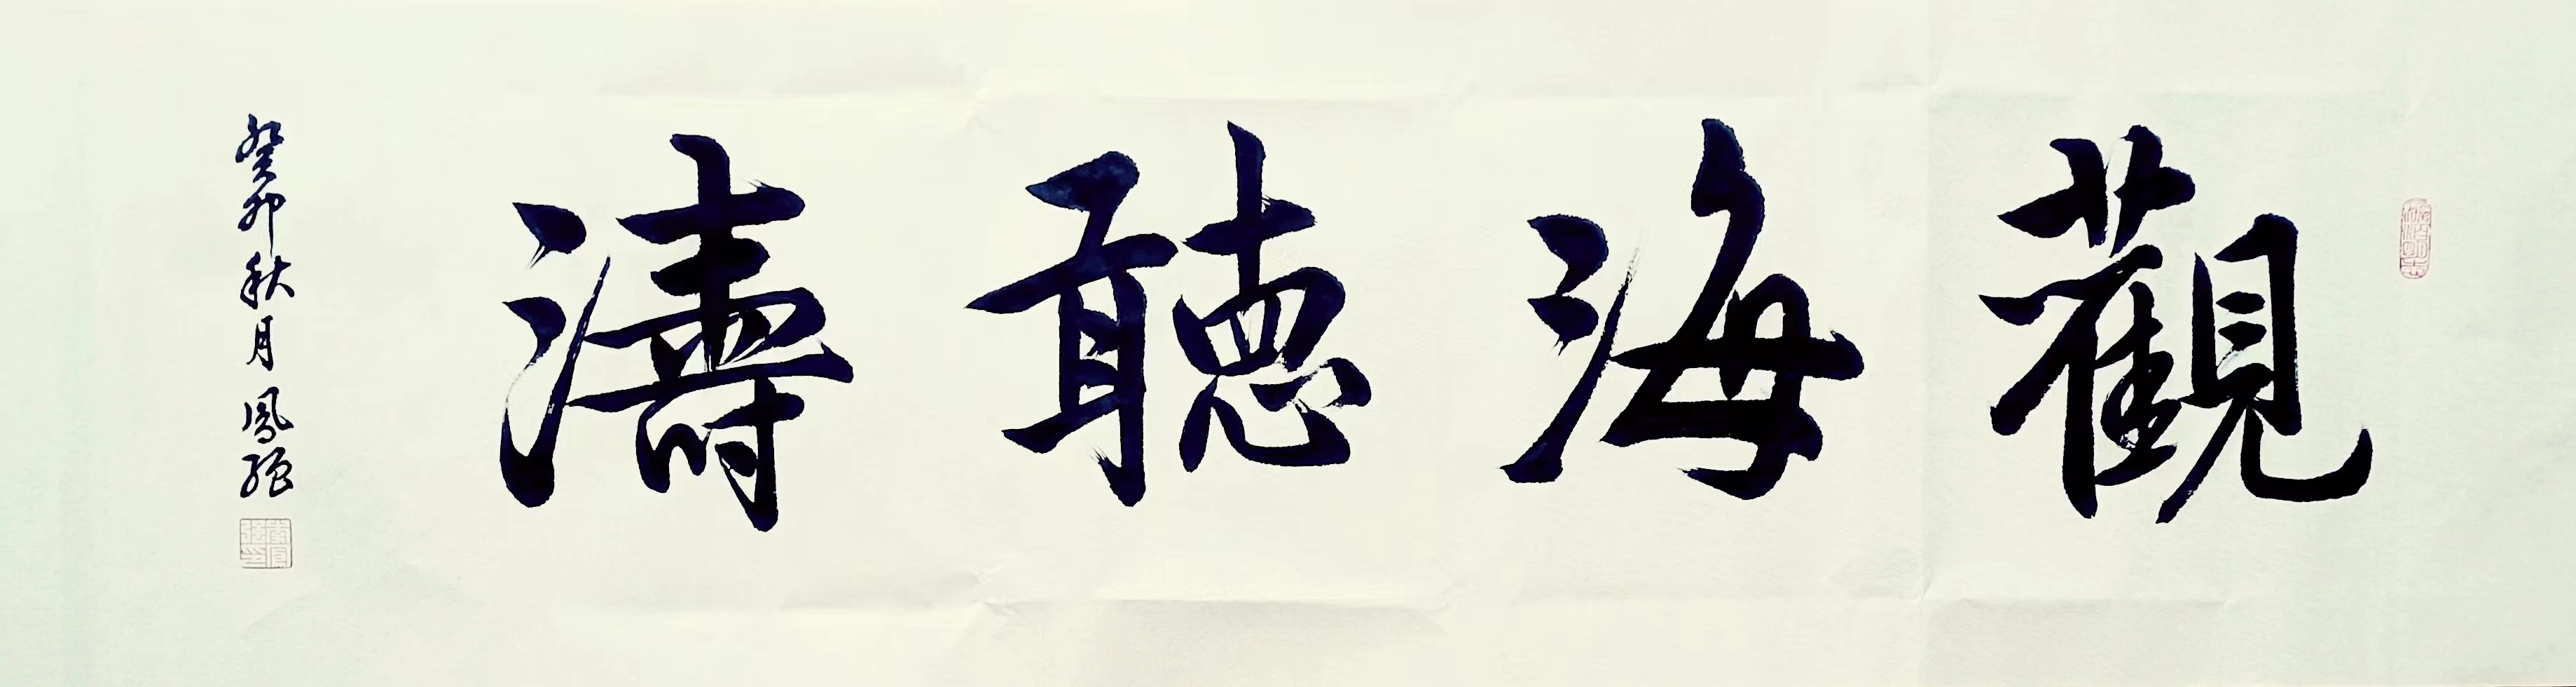 觀海聽濤
癸卯秋月鳳強